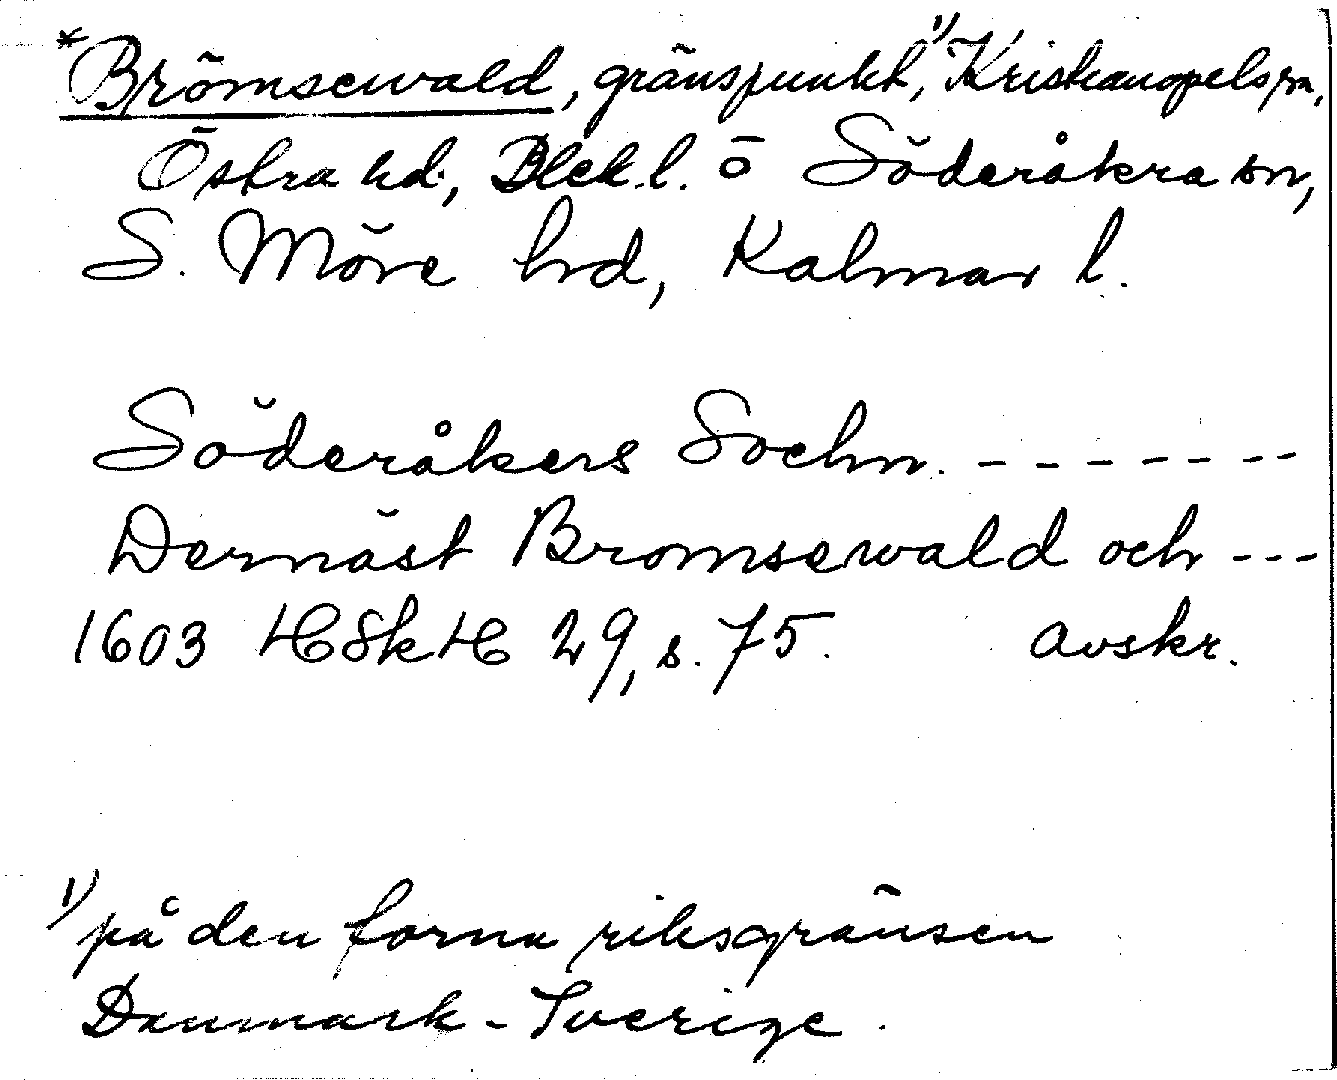 *Brömsewald, gränspunkt,¹⁾ Kristianopels sn,
Östra hd, Blek. l. o Söderåkra sn,
S. Möre hd, Kalmar l.
Söderåkers Sochn. - - - - - - -
Dernäst Bromsewald och - - -
1603 HSkH 29, s. 75. avskr.
¹⁾ på den forna riksgränsen
Danmark - Sverige.